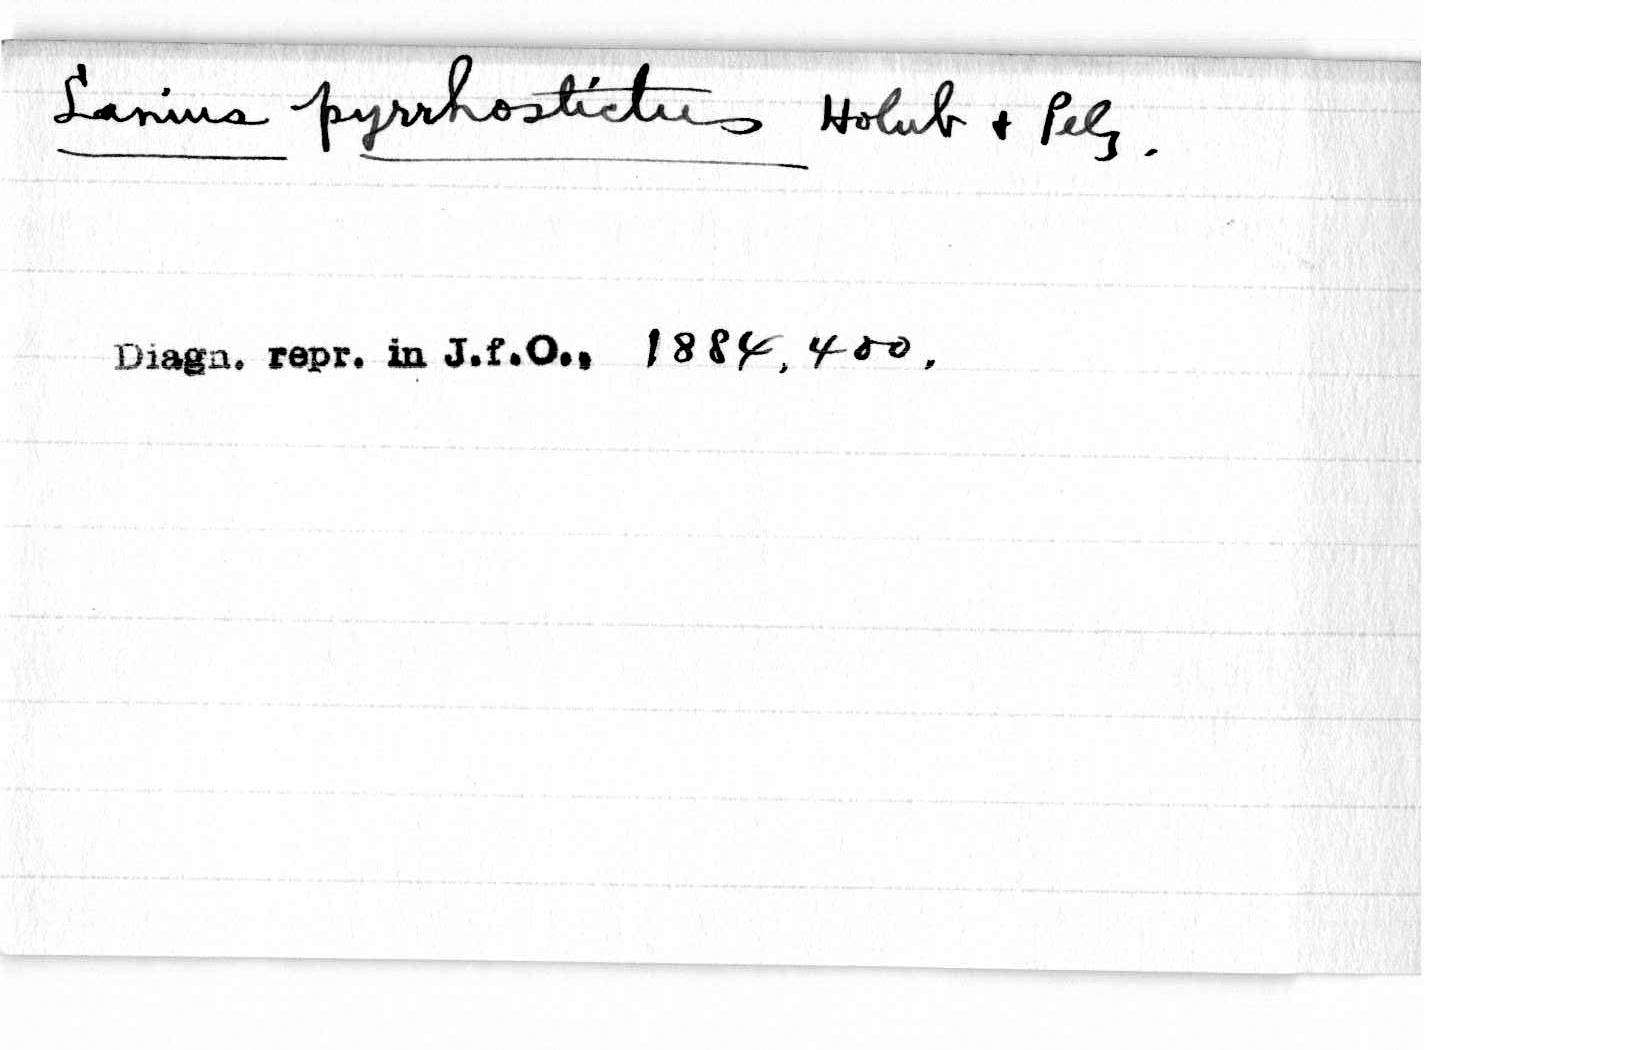 Lanius pyrrhostictus Holub & Pelz.
Diagn. repr. in J.f.O., 1884, 400.